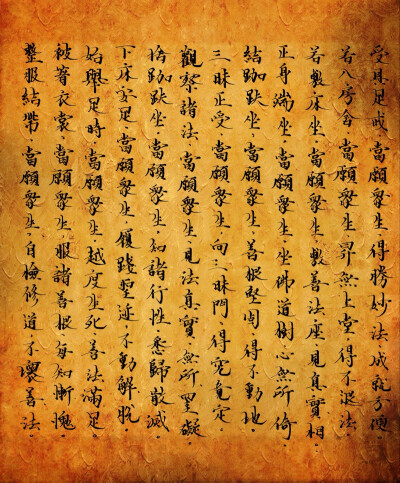 受具足戒。當願眾生。得勝妙法。成就方便。
若入房舍。當願眾生。昇無上堂。得不退法。
若敷床坐。當願眾生。敷善法座。見真實相。
正身端坐。當願眾生。坐佛道樹。心無所倚。
結跏趺坐。當願眾生。善根堅固。得不動地。
三昧正受。當願眾生。向三昧門。得究竟定。
觀察諸法。當願眾生。見法真實。無所罣礙。
捨跏趺坐。當願眾生。知諸行性。悉歸散滅。
下床安足。當願眾生。履踐聖迹。不動解脫。
始舉足時。當願眾生。越度生死。善法滿足。
被著衣裳。當願眾生。服諸善根。每知慚愧。
整服結帶。當願眾生。自檢修道。不壞善法。